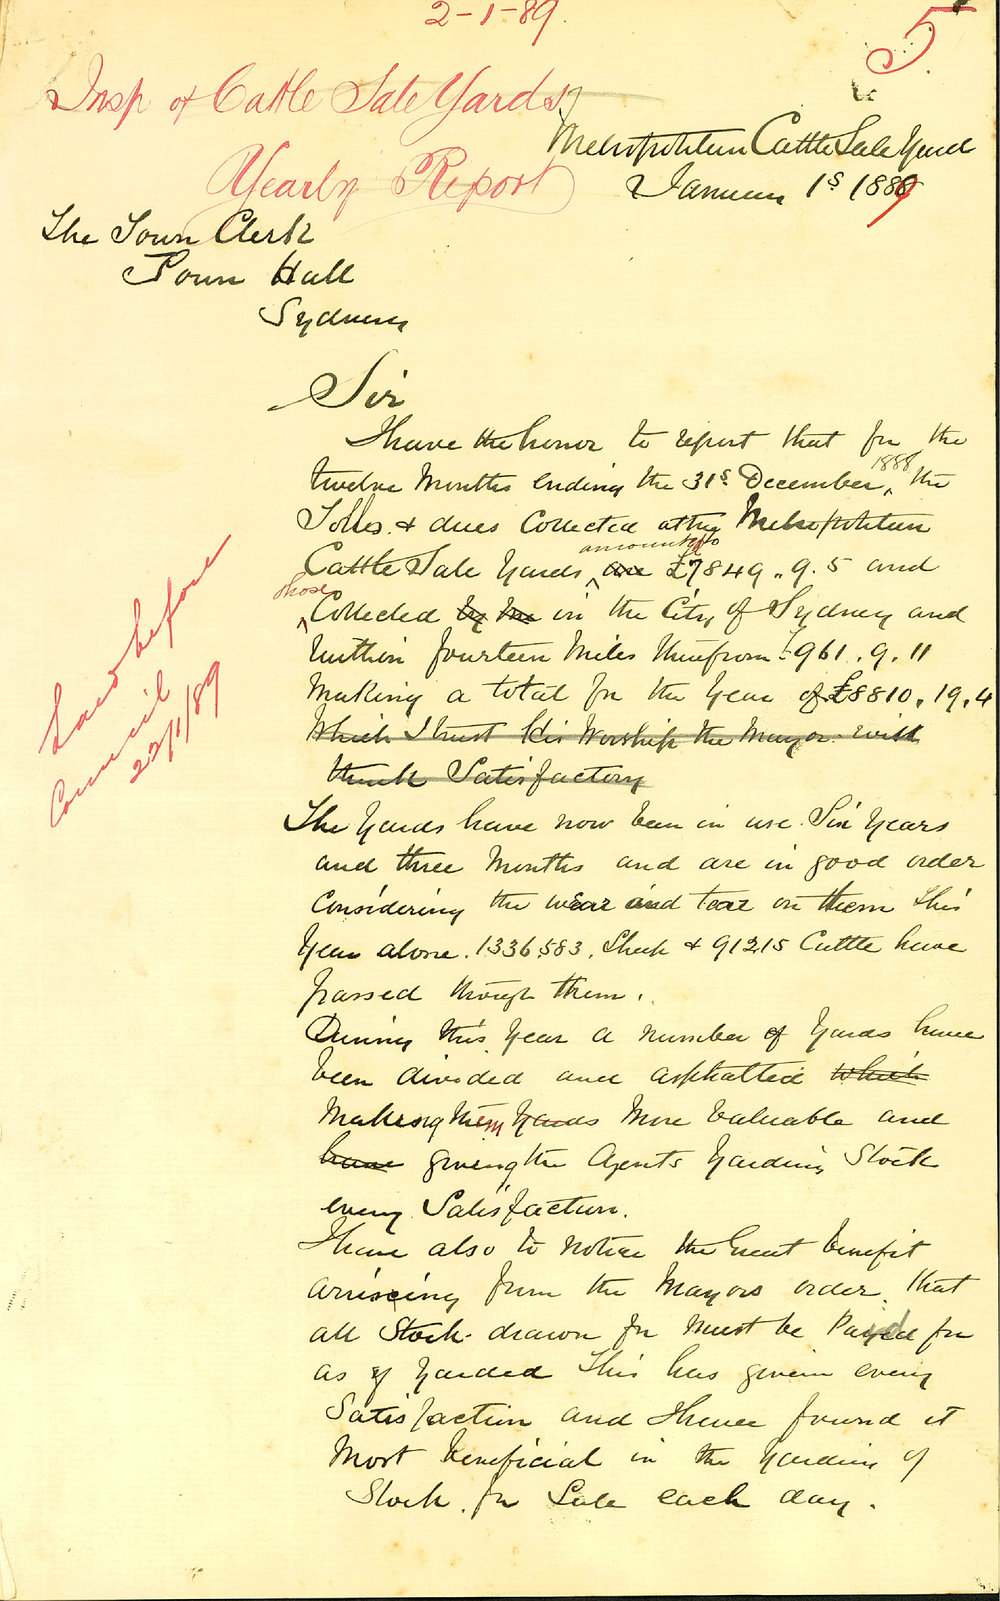 2-1-89.
5
Insp of Cattle Sale Yards
Yearly Report
Metropolitan Cattle Sale Yard
January 1s 1889
The Town Clerk
Town Hall
Sydney
Sir
I have the honor to report that for the
twelve Months ending the 31s December 1888, the
Tolls & dues Collected at the Metropolitan
Cattle Sale Yards are amounted to £7849.9.5 and
those Collected by me in the City of Sydney and
within fourteen Miles therefrom £961.9.11
Making a total for the Year of £8810.19.4
Which I trust His Worship the Mayor will
think Satisfactory
Laid before
Council
22/1/89
The Yards have now been in use Six Years
and three Months and are in good order
Considering the wear and tear on them this
Year alone. 1336,583. Sheep & 91215 Cattle have
passed through them.
During this Year a number of Yards have
been divided and asphalted which
Making them Yards More Valuable and
have giving the Agents Yarding Stock
every Satisfaction.
I have also to notice the Great benefit
arriseing from the Mayors order that
all Stock drawn for Must be Paid for
as if Yarded This has given every
Satisfaction and I have found it
Most beneficial in the Yarding of
Stock for Sale each day.